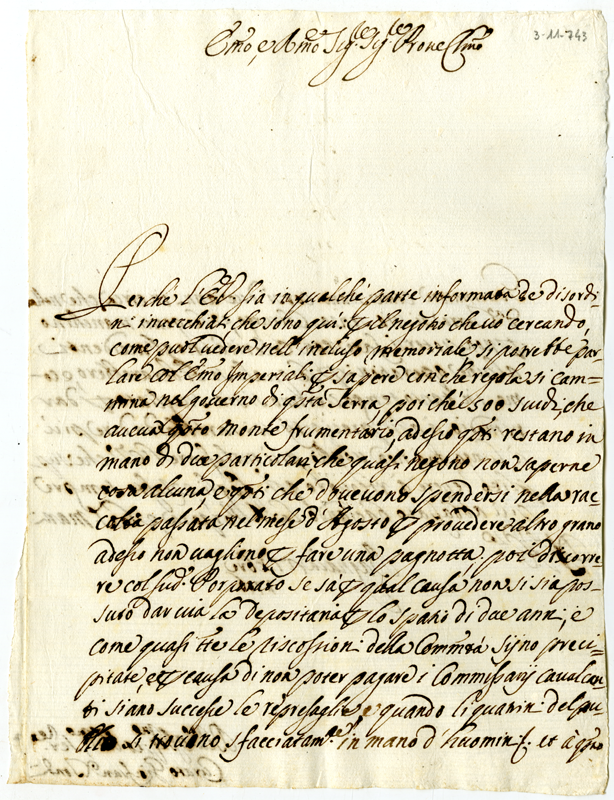 3-11-743
Emo, e Rmo Sigr Sigr Prone Clmo
Perche l'Eb. sia in qualche parte informata de disordi-
ni invecchiati che sono quà: p il negotio che vò cercando,
come puol vedere nell'incluso memoriale, si potrebbe par-
lare col Emo Imperiali p sapere con che regola si cam-
mina nel governo di qsta Terra poiche 500 scudi, che
aveva qsto monte frumentario, adesso qsti restano in
mano di due particolari, che quasi negono non saperne
cosa alcuna, e qsti che dovevono spendersi nella rac-
colta passata nel mese d'Agosto p provedere altro grano
adesso non vagliono p fare una pagnotta, pol discorre-
re col sud. Porporato se sà p qual causa non si sia pos-
suto dar via la depositaria p lo spatio di due anni, e
come quasi tte le riscossioni della Commtà sijno preci-
pitate, e p causa di non poter pagare i Commissarij cavalcan-
ti siano successe le represaglie e quando li quatrini del pu-
blico si trovono sfacciatamte in mano d'huomini f. et à qsto